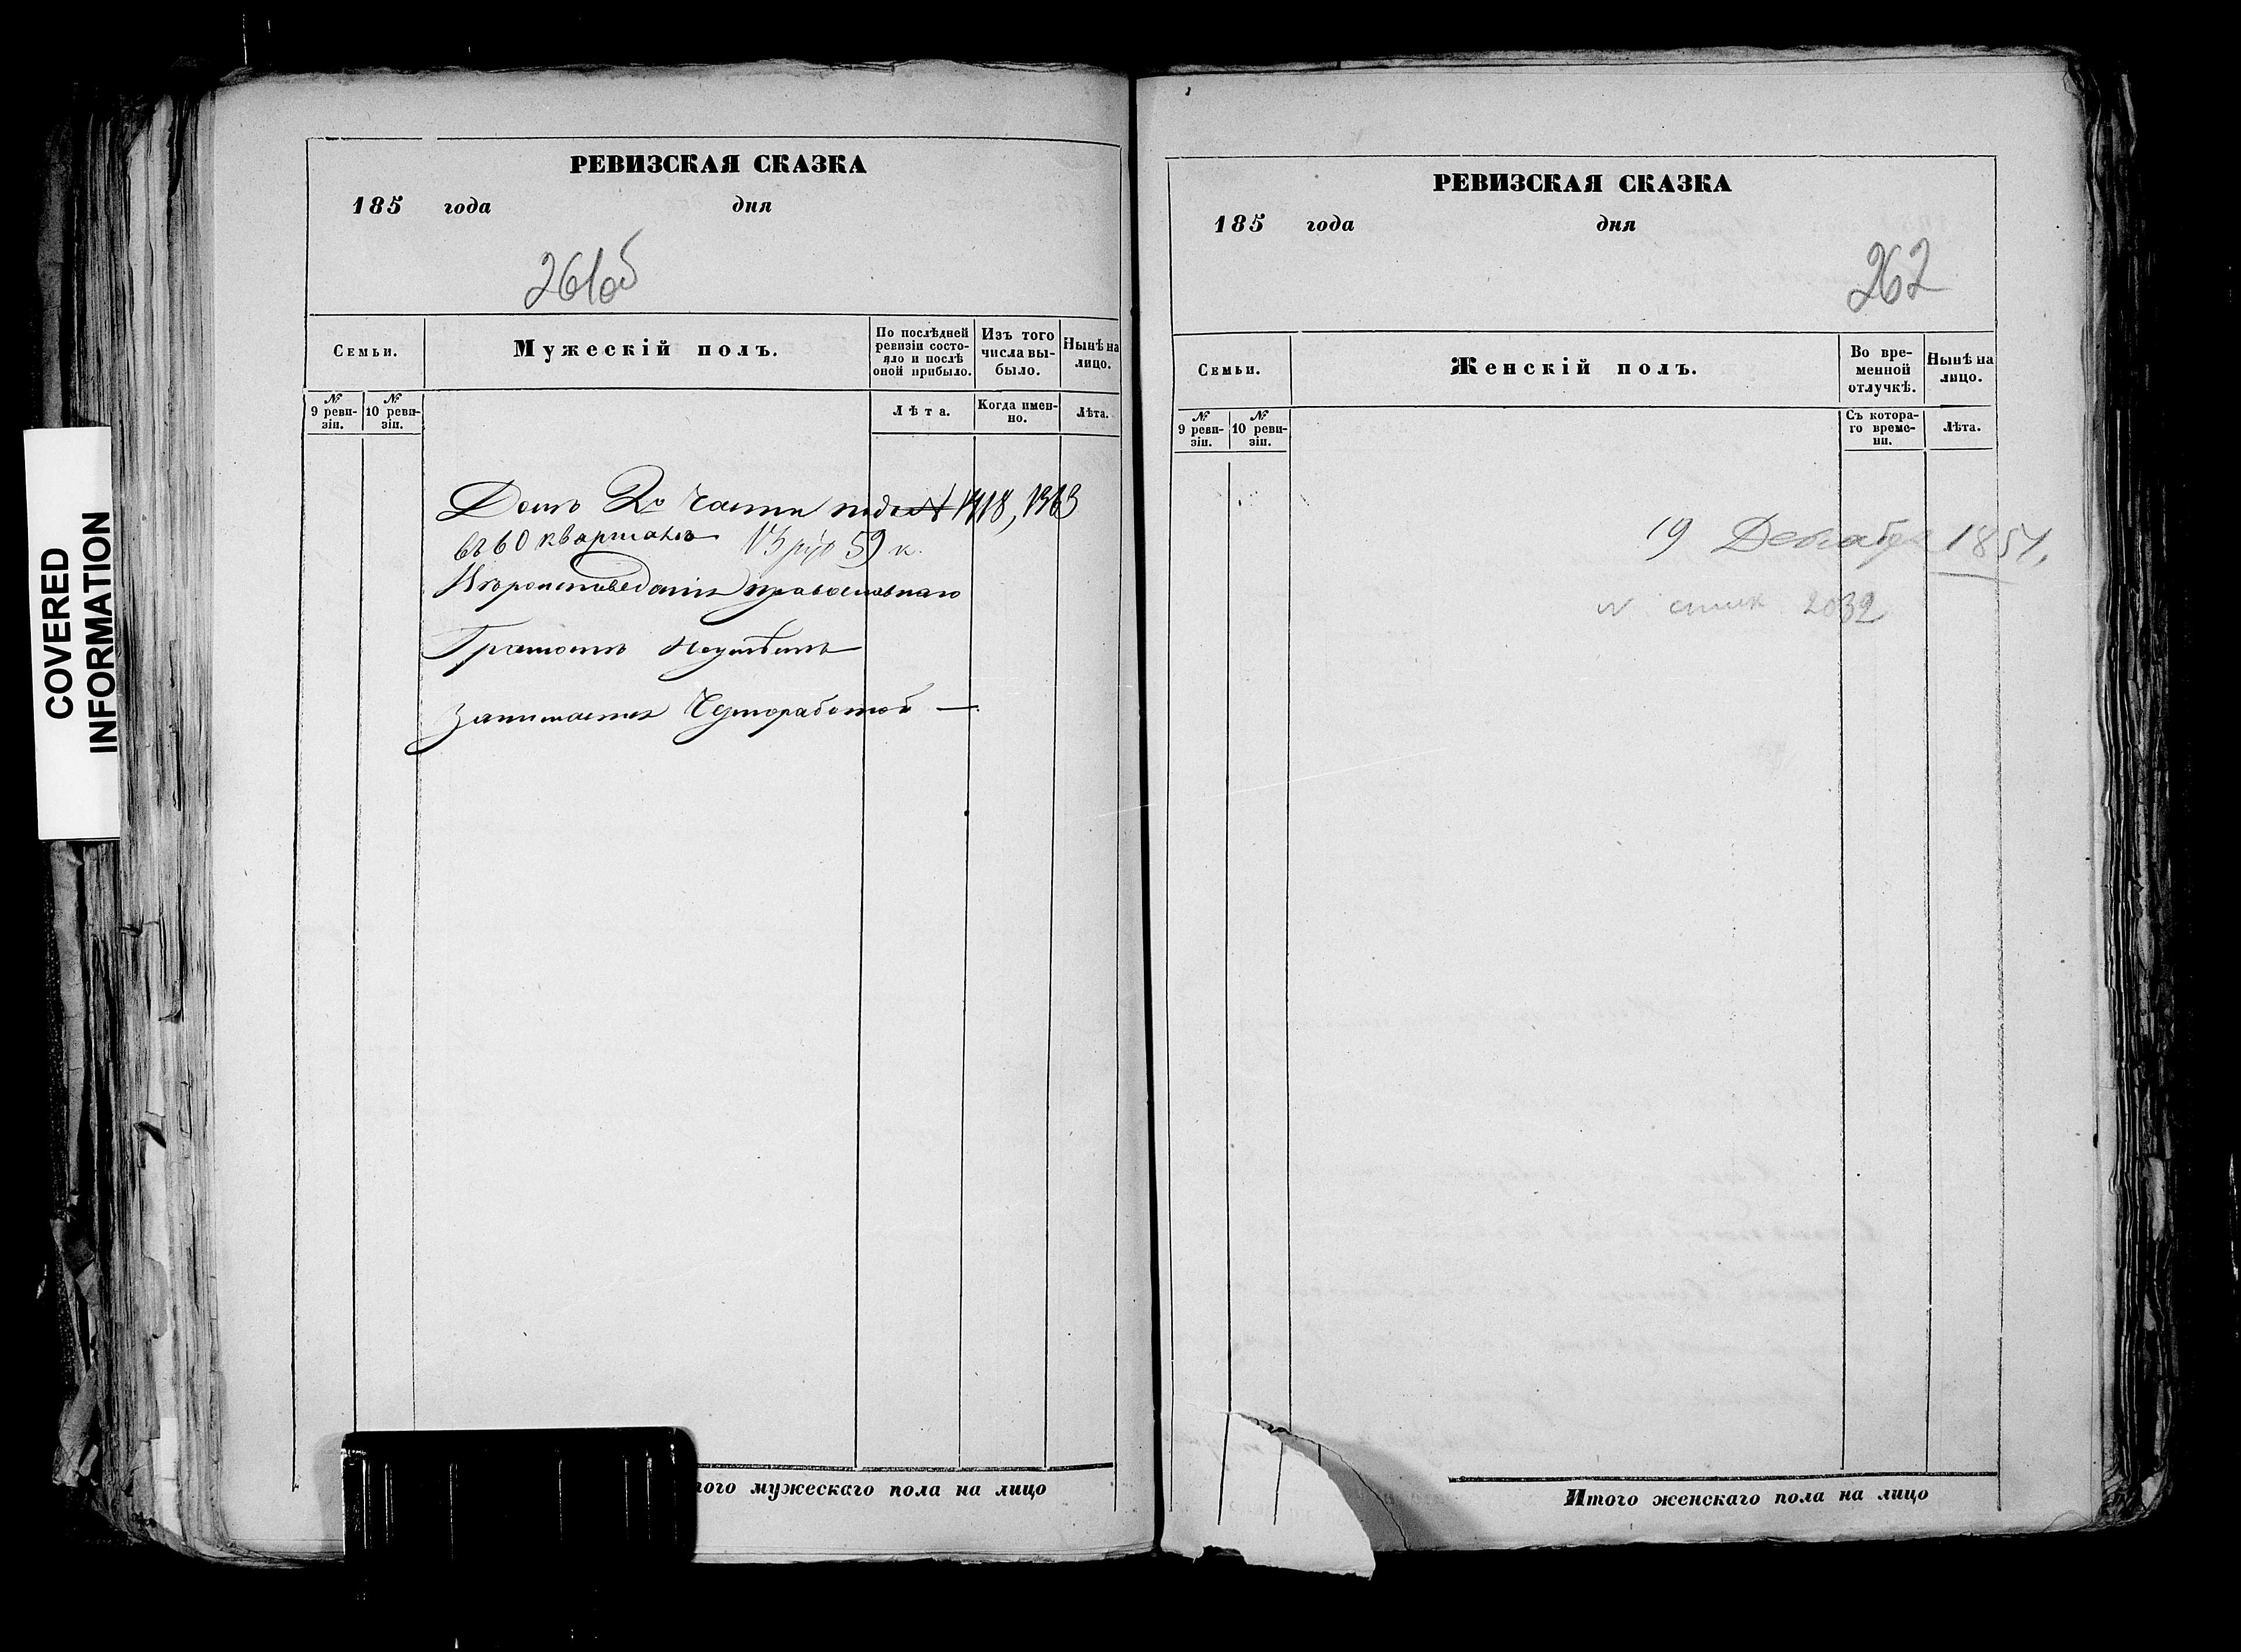 COVERED
INFORMATION
РЕВИЗСКАЯ СКАЗКА
185 года дня
261об
Семьи.
Мужескій полъ.
По послѣдней
ревизіи состо-
яло и послѣ
оной прибыло.
Изъ того
числа вы-
было.
Нынѣ на
лицо.
№
9 реви-
зіи.
№
10 реви-
зіи.
Лѣта.
Когда имен-
но.
Лѣта.
Домъ 2й Части подъ № 1418, 1363
въ 60 кварталѣ 13 руб 59 к.
Вѣроисповеданія православнаго
Грамотѣ неумѣетъ
Занимается Черноработой —
того мужескаго пола на лицо
РЕВИЗСКАЯ СКАЗКА
185 года дня
262
Семьи.
Женскій полъ.
Во вре-
менной
отлучкѣ.
Нынѣ на
лицо.
№
9 реви-
зіи.
№
10 реви-
зіи.
Съ котора-
го време-
ни.
Лѣта.
19 Декабря 1857.
2032
Итого женскаго пола на лицо